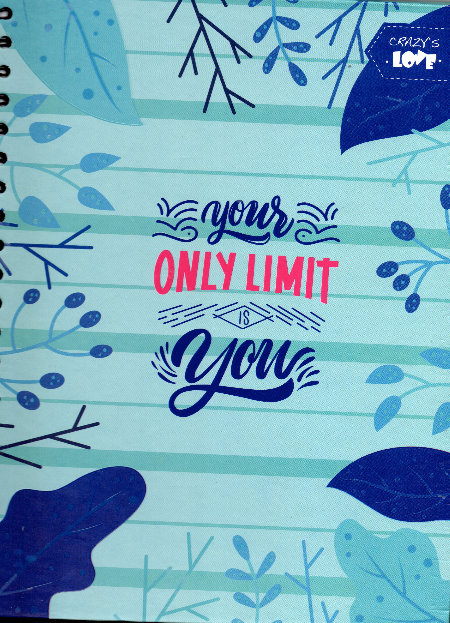 CRAZY'S
LOVE
your
ONLY LIMIT
is
You